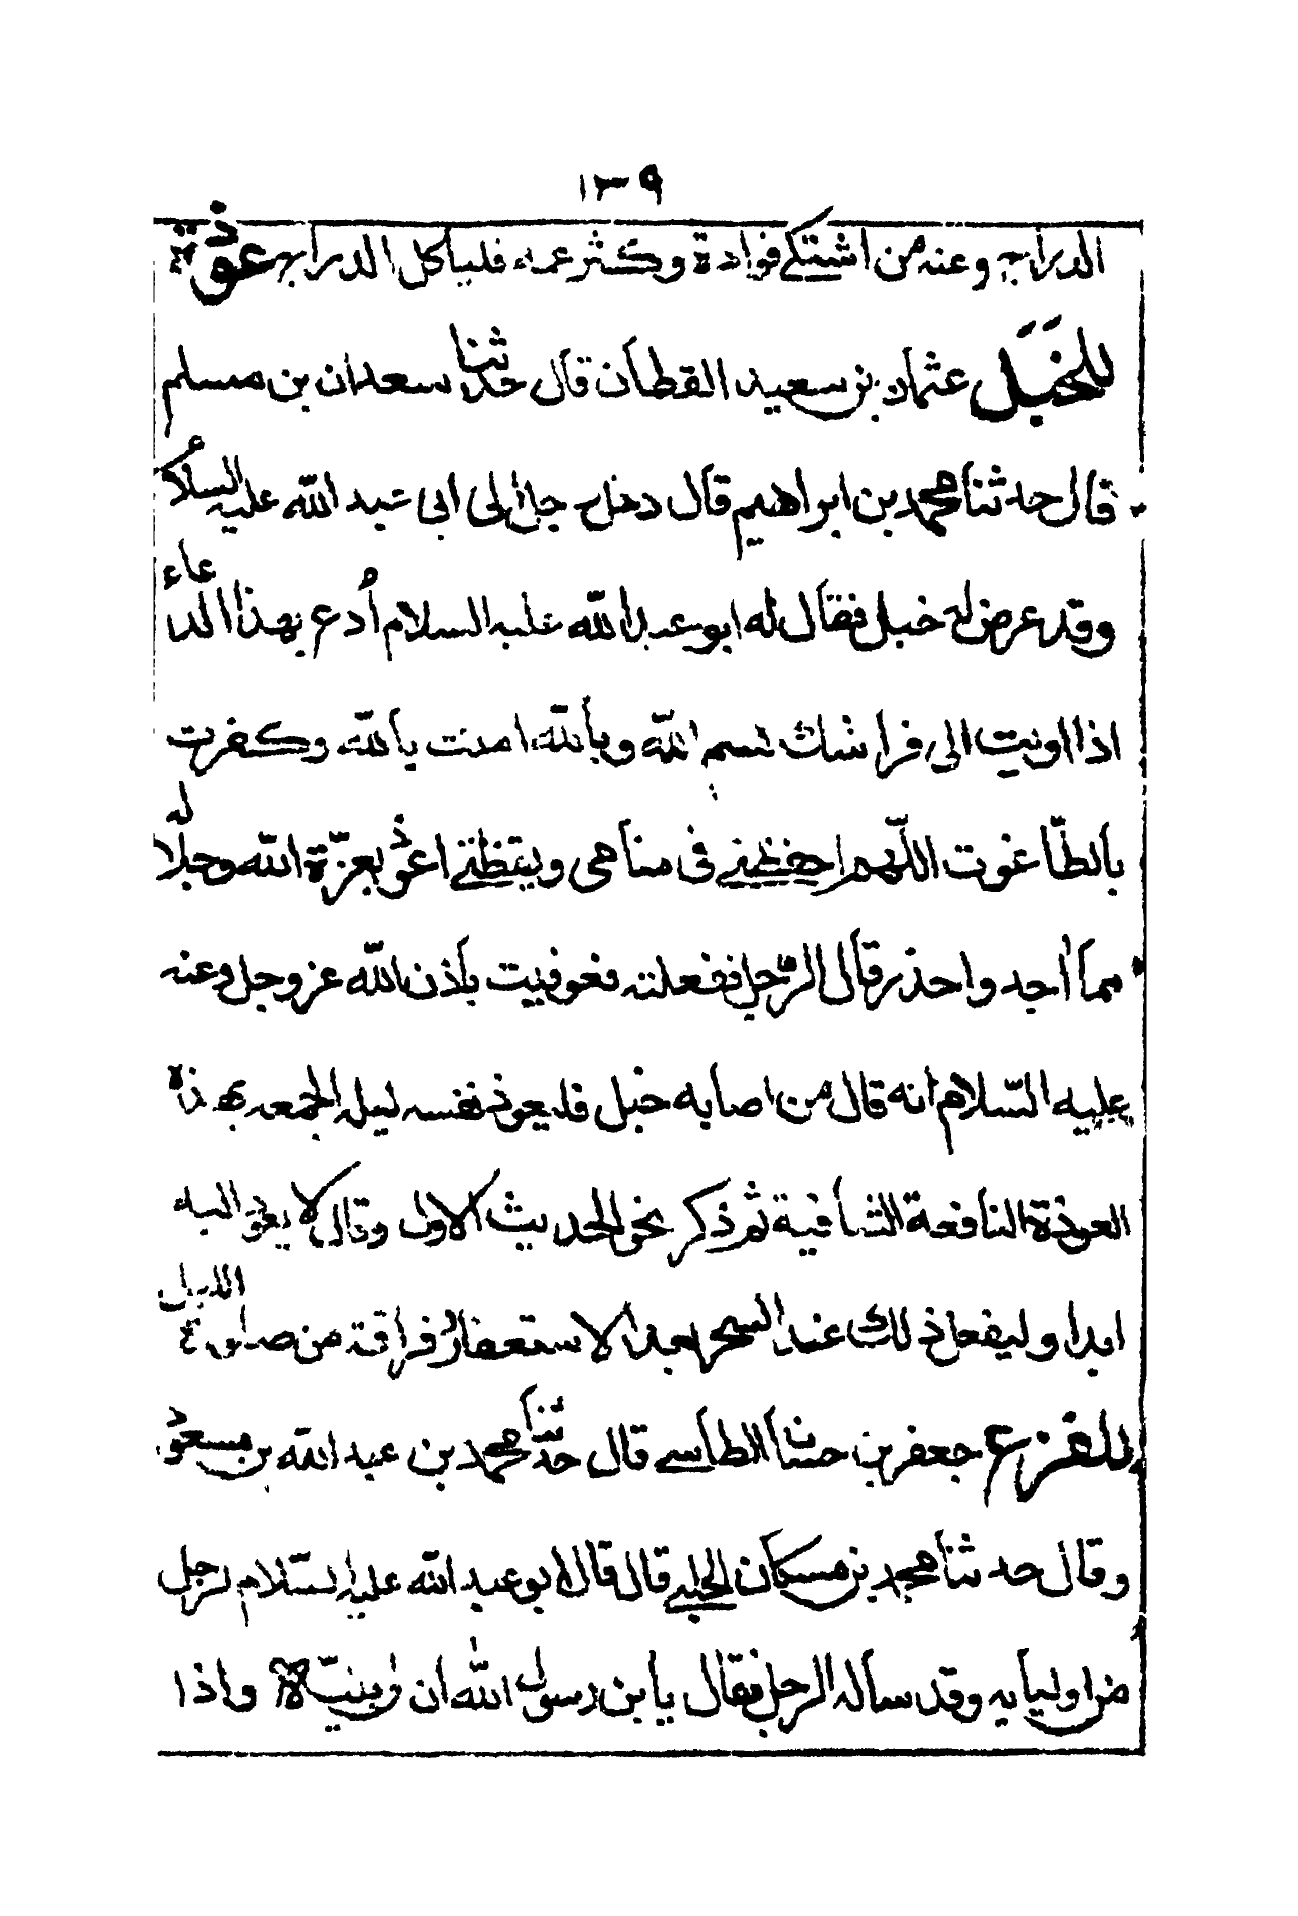 ١٣٩
الدراج وعنه من اشتكى فواده وكثر غمه فلياكل الدراج عوذة
للخبل عثمان بن سعيد القطان قال حدثنا سعدان بن مسلم
قال حدثنا محمد بن ابراهيم قال دخل رجل الى ابى عبد الله عليه السلام
وقد عرض له خبل فقال له ابو عبد الله عليه السلام اُدع بهذا الدعاء
اذا اويت الى فراشك بسم الله وبالله امنت بالله وكفرت
بالطاغوت اللّهم احفظنى فى منامى ويقظتى اعوذ بعزة الله وجلاله
مما اجد واحذر قال الرجل ففعلته فعوفيت باذن الله عز وجل وعنه
عليه السّلام انه قال من اصابه خبل فليعوذ نفسه ليلة الجمعه بهذه
العوذة النافعة الشافية ثم ذكر نحو الحديث الاول وقال لا يعود اليه
ابدا وليفعل ذلك عند السحر بعد الاستغفار وفراغه من صلوة الليل
للفزع جعفر بن حنان الطائى قال حدثنا محمد بن عبد الله بن مسعود
وقال حدثنا محمد بن مسكان الحلبى قال قال ابو عبد الله عليه السّلام لرجل
من اوليايه وقد ساله الرجل فقال يا بن رسول الله ان لى بنيّة واذا